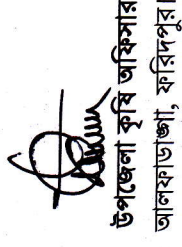 উপজেলা কৃষি অফিসার
আলফাডাঙ্গা, ফরিদপুর।